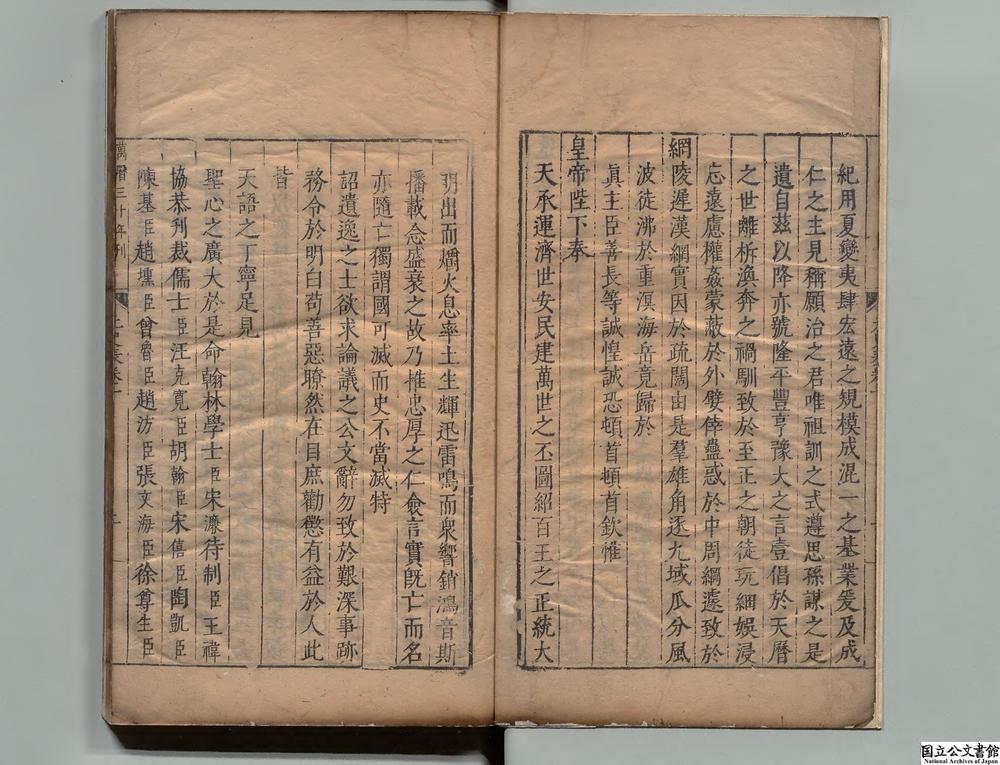 紀用夏變夷肆宏遠之規模成混一之基業爰及成
仁之主見稱願治之君唯祖訓之式遵思孫謀之是
遺自茲以降亦號隆平豐亨豫大之言壹倡於天曆
之世離析渙奔之禍馴致於至正之朝徒玩細娛浸
忘遠慮權姦蒙蔽於外嬖倖蠱惑於中周綱遽致於
綱陵遲漢網實因於疏闊由是羣雄角逐九域瓜分風
波徒沸於重溟海岳竟歸於
眞主臣善長等誠惶誠恐頓首頓首欽惟
皇帝陛下奉
天承運濟世安民建萬世之丕圖紹百王之正統大
明出而爝火息率土生輝迅雷鳴而衆響銷鴻音斯
播載念盛衰之故乃推忠厚之仁僉言實旣亡而名
亦隨亡獨謂國可滅而史不當滅特
詔遺逸之士欲求論議之公文辭勿致於艱深事跡
務令於明白苟善惡瞭然在目庶勸懲有益於人此
皆
天語之丁寧足見
聖心之廣大於是命翰林學士臣宋濂待制臣王禕
協恭刋裁儒士臣汪克寬臣胡翰臣宋僖臣陶凱臣
陳基臣趙壎臣曾魯臣趙汸臣張文海臣徐尊生臣
萬曆三十年刋
国立公文書館
National Archives of Japan